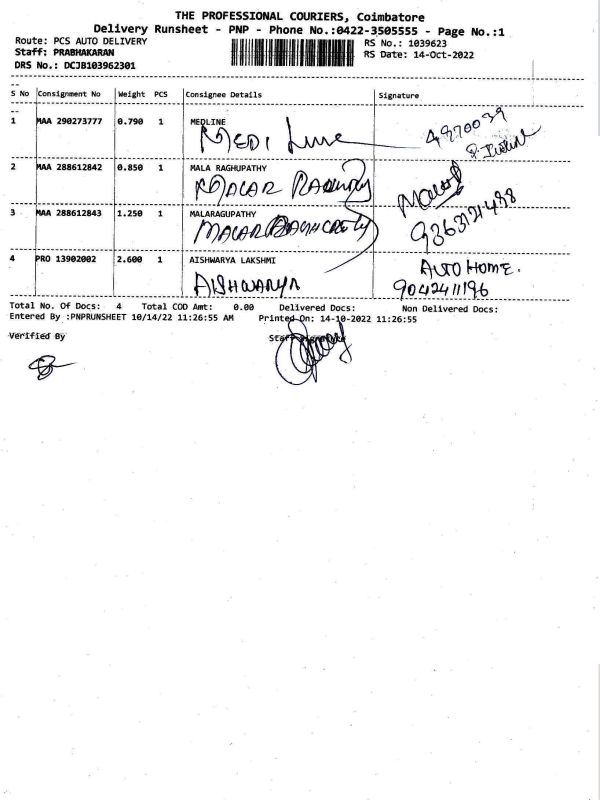 THE PROFESSIONAL COURIERS, Coimbatore
Delivery Runsheet - PNP - Phone No.:0422-3505555 - Page No.:1
Route: PCS AUTO DELIVERY
Staff: PRABHAKARAN
DRS No.: DCJB103962301
RS No.: 1039623
RS Date: 14-Oct-2022
S No Consignment No Weight PCS Consignee Details Signature
1 MAA 290273777 0.790 1 MEDLINE
MEDI Line 4970039
2 MAA 288612842 0.850 1 MALA RAGHUPATHY
MALAR
3 MAA 288612843 1.250 1 MALARAGUPATHY
MALAR
4 PRO 13902002 2.600 1 AISHWARYA LAKSHMI AUTO HOME.
AISHWARYA 9042411196
Total No. Of Docs: 4 Total COD Amt: 0.00 Delivered Docs: Non Delivered Docs:
Entered By :PNPRUNSHEET 10/14/22 11:26:55 AM Printed On: 14-10-2022 11:26:55
Verified By Staff Signature